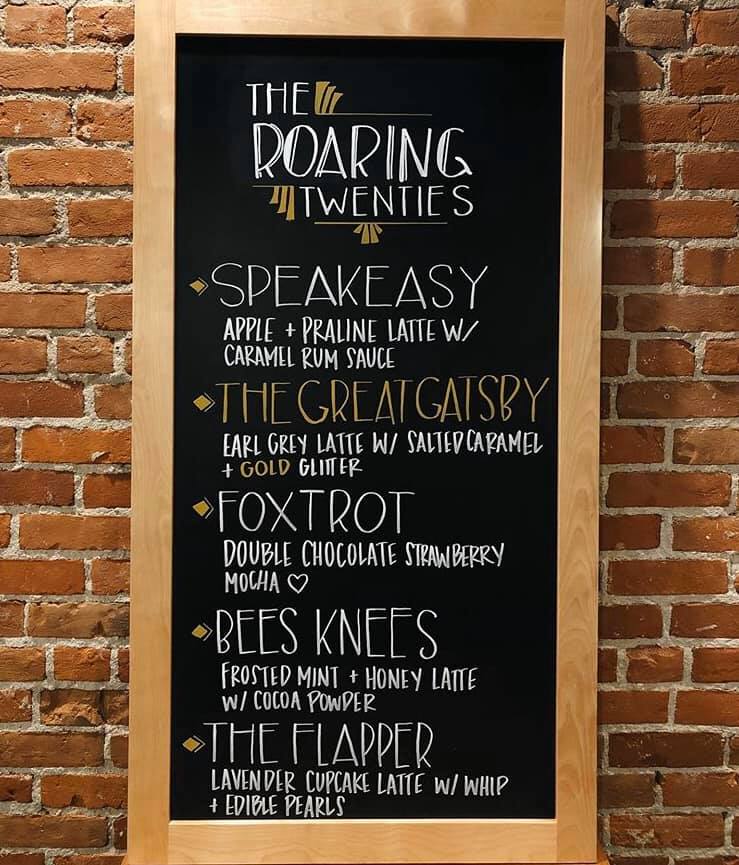 THE
ROARING
TWENTIES
SPEAKEASY
APPLE + PRALINE LATTE W/
CARAMEL RUM SAUCE
THE GREAT GATSBY
EARL GREY LATTE W/ SALTED CARAMEL
+ GOLD GLITTER
FOXTROT
DOUBLE CHOCOLATE STRAWBERRY
MOCHA ♡
BEES KNEES
FROSTED MINT + HONEY LATTE
W/ COCOA POWDER
THE FLAPPER
LAVENDER CUPCAKE LATTE W/ WHIP
+ EDIBLE PEARLS